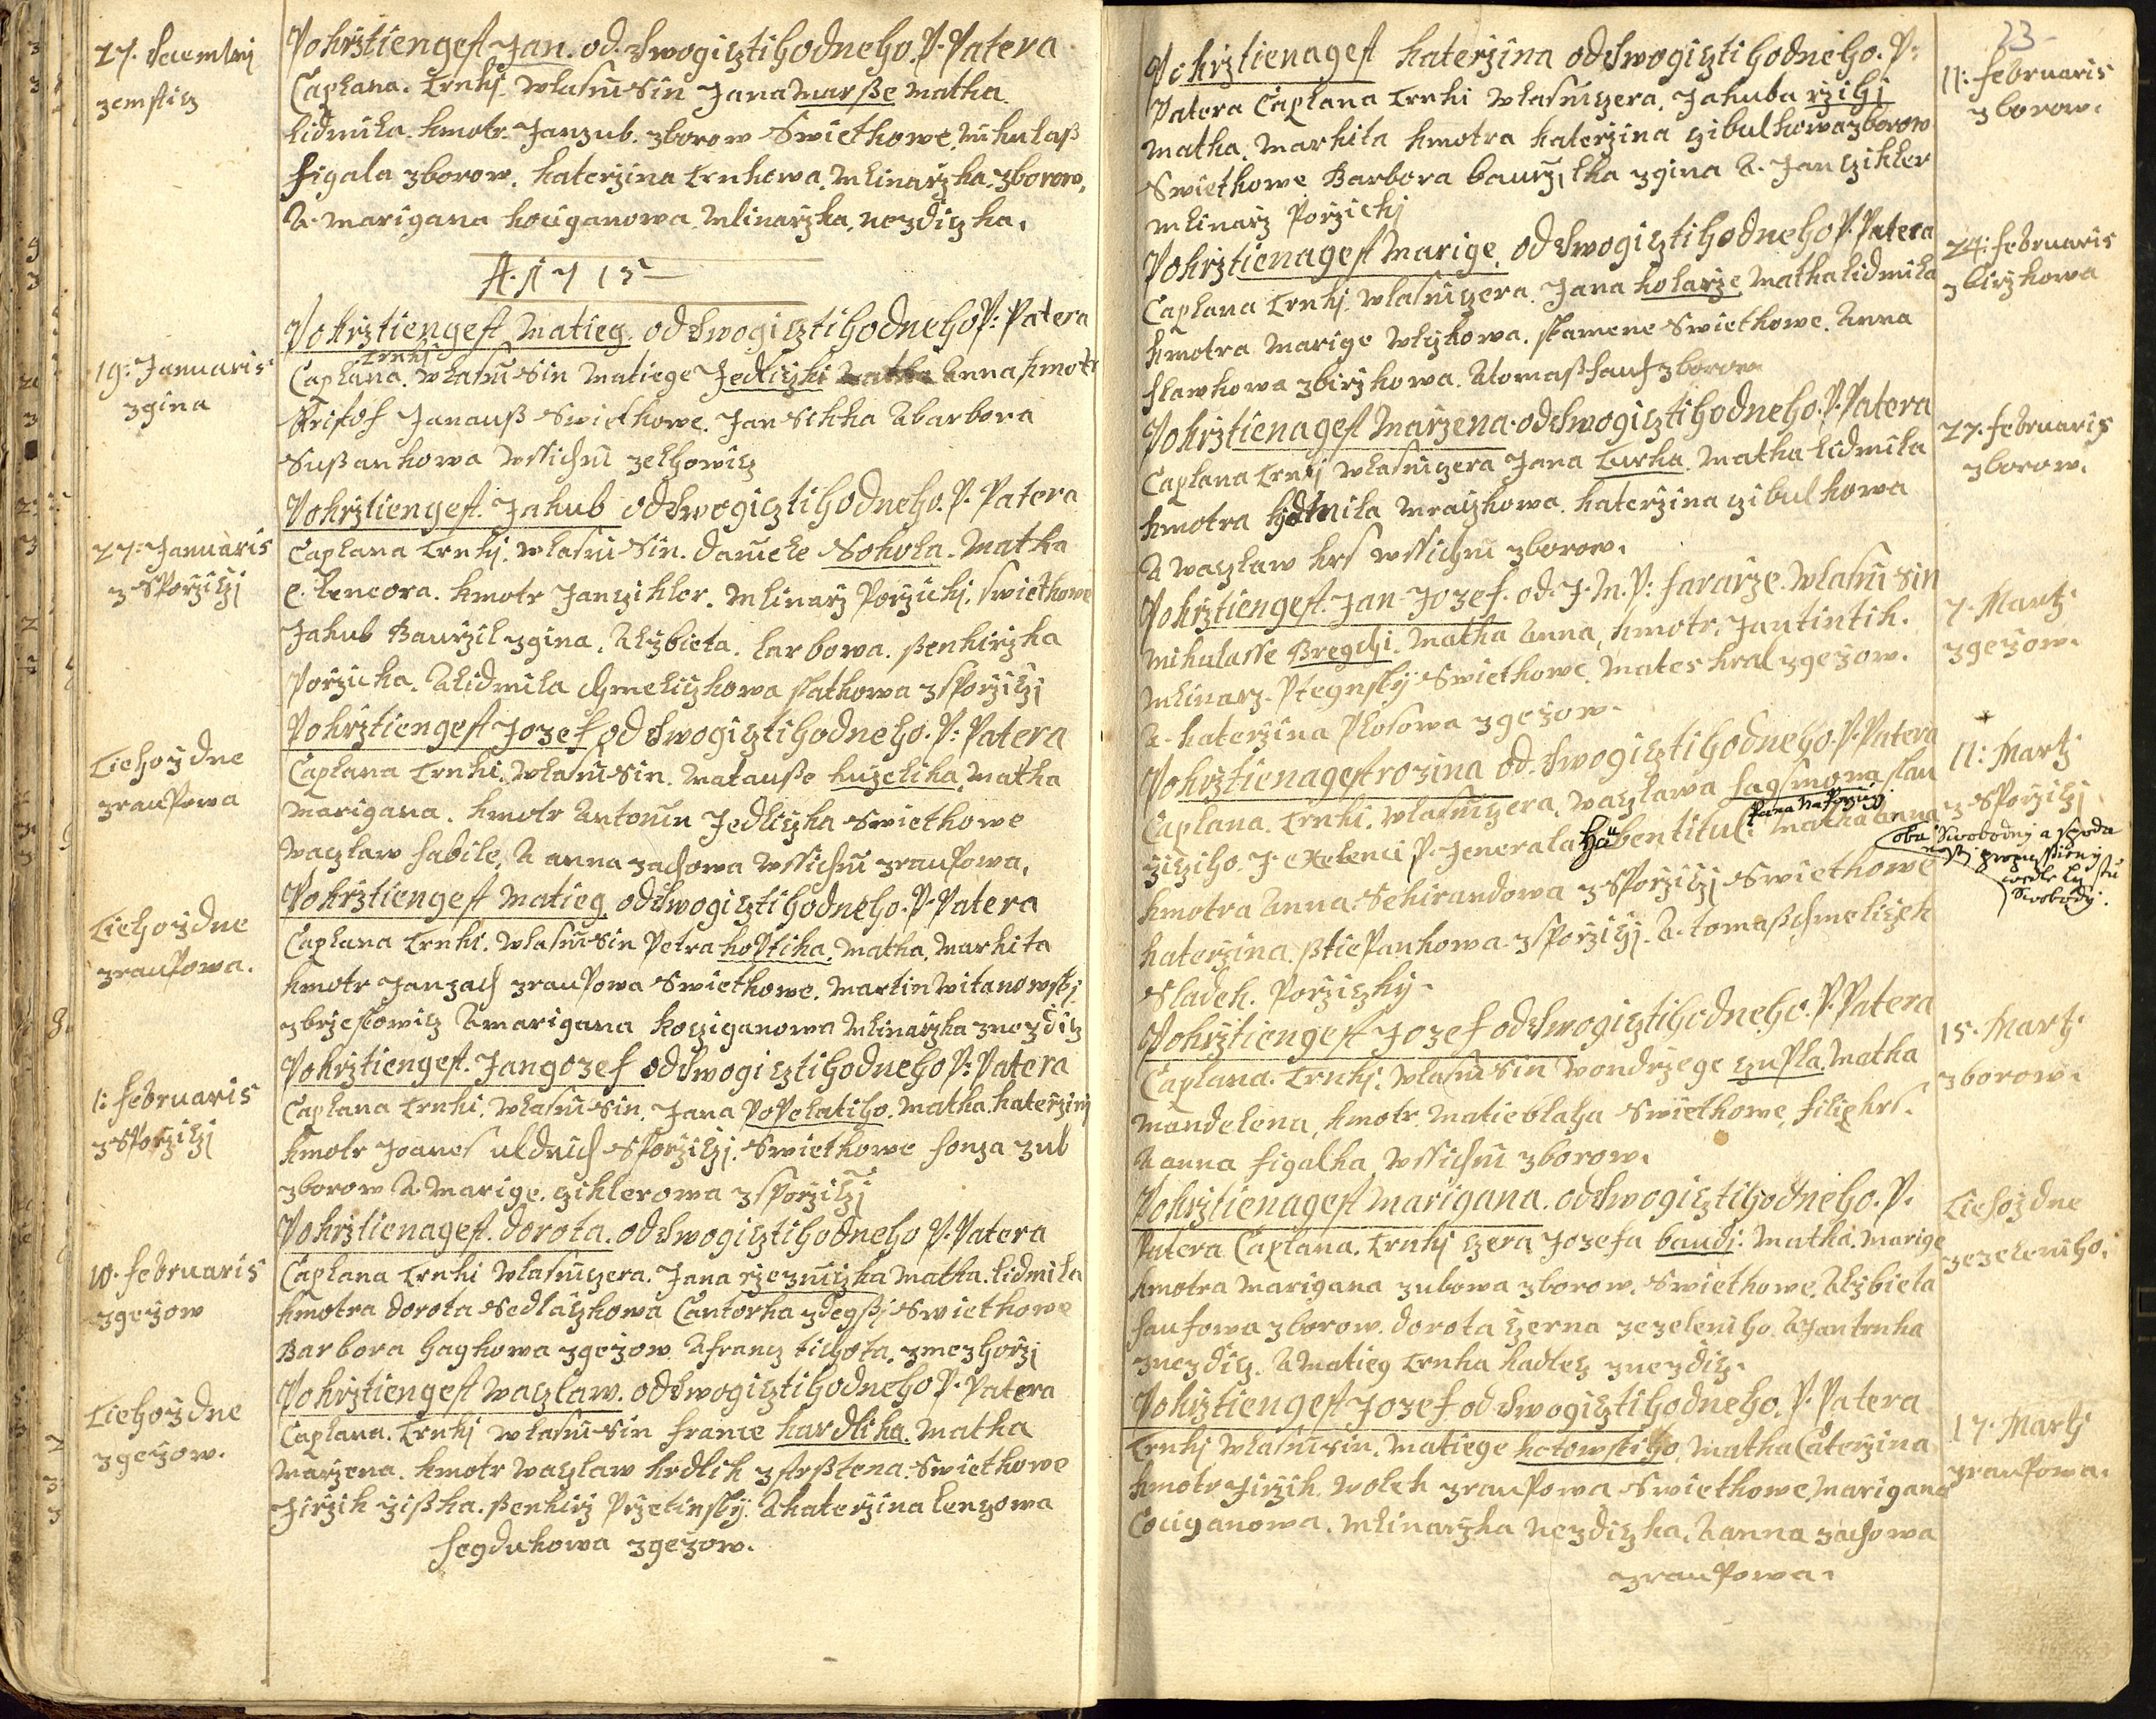 27. decembrij
zemsticz
Pokrztiengest Jan. od. Dwogicztihodneho. P. Patera
Caplana. Trnkj. wlasni Sin Jana Marsse Matka
Lidmila. kmotr. Jan zub. zborow Swietkowe, Mikulass
figala zborow, katerzina trnkowa, Mlinarzka, zborow,
A. Marigana kociganowa Mlinarzka, nezdiczka,
A. 1715
19: Januaris
zgina
Pokrztiengest Matieg. od Dwogicztihodneho P: Patera
Trnkj
Caplana. wlasni Sin Matiege Jedliczki Matka Anna kmotr
Kristof Janauss Swietkowe. Jan Sikka A barbora
Sussankowa wssichni zelhowicz
27: Januaris
z Sporzilzj
Pokrztiengest. Jakub od Dwogicztihodneho. P. Patera
Caplana Trnkj. wlasni Sin. daniele Sokola. Matka
e. leneora. kmotr Jan zikler. Mlinarz Porzickj. Swietkowe
Jakub Baurzil zgina. Alzbieta. larbowa. ssenkirzka
Porzicka. A lidmila chmeliczkowa slatkowa z Sporzilzj
Tiehozdne
zraupowa
Pokrztiengest Jozef od Dwogicztihodneho. P: Patera
Caplana Trnki. wlasni Sin. Matausse kuzelika, Matka
Marigana. kmotr Antonin Jedliczka Swietkowe
waczlaw habile, A anna zachowa wssichni zraupowa,
Tiehozdne
zraupowa.
Pokrztiengest Matieg. od Dwogicztihodneho. P. Patera
Caplana Trnki. wlasni Sin Petra kostika, Matka, Markita
kmotr Jan zach zraupowa Swietkowe. Martin witanowskj
zbrzeskowicz A marigana kocziganowa Mlinarzka znezdicz
1: februaris
z Sporzilzj
Pokrztiengest. Jan gozef od Dwogicztihodneho P: Patera
Caplana Trnki. wlasni Sin, Jana Popelatiho. Matka. katerzinj
kmotr Joanes uldrich Sporzilzj. Swietkowe honza zub
zborow A. Marige. ziklerowa z Sporzilzj
10. februaris
zgezow
Pokrztienagest. dorota. od Dwogicztihodneho P. Patera
Caplana Trnki wlasni zera. Jana rzezniczka Matka. Lidmila
kmotra dorota Sedlaczkowa Cantorka zdegssj Swietkowe
Barbora hagkowa zgezow A francz tichota. zmezhorzj
Tiehozdne
zgezow.
Pokrztiengest waczlaw. od Dwogicztihodneho P. Patera
Caplana. Trnkj wlasni Sin france hardlika. Matka
Marzena. kmotr waczlaw hrdlik zstrsstena. Swietkowe
Jirzik zisska. ssenkirz Przetinsky. A katerzina lenzowa
hegdukowa zgezow.
23
Pokrztienagest katerzina od Dwogicztihodneho. P:
11: februaris
zborow.
Patera Caplana Trnki wlasni zera. Jakuba rzihj
Matka. Markita kmotra katerzina zibulkowa zborow
Swietkowe Barbora baurzilka zgina A. Jan zikler
Mlinarz Porzickj
Pokrztienagest Marige. od Dwogicztihodneho P. Patera
24: februaris
zbirzkowa
Caplana Trnkj. wlasni zera. Jana kolarze Matka lidmila
kmotra Marige wlzkowa. skamene Swietkowe. Anna
slawkowa zbirzkowa. A tomass hauf zborow
Pokrztienagest Marzena. od Dwogicztihodneho. P. Patera
27. februaris
zborow.
Caplana Trnkj wlasni zera Jana Turka. Matka lidmila
kmotra lidmila mraczkowa. katerzina zibulkowa
A waczlaw krs wssichni zborow.
Pokrztiengest. Jan Jozef. od. J. M. P: fararze. wlasni Sin
7. Martz.
zgezow.
Mikulasse Bregchi. Matka Anna, kmotr. Jan tintih.
Mlinarz. Ptegnsky Swietkowe. Mates kral zgezow.
A. katerzina Plosowa zgezow.
Pokrztienagest rozina od. Dwogicztihodneho. P. Patera
11: Martz
z Sporzilzj
Caplana. Trnki. wlasni zera, waczlawa hagsmona slau
Pana na Porzicj
zicziho J. exelenci P. Jenerala Haubentitul: Matka anna
oba Swobodny a
Swobody.
kmotra Anna Sekirandowa z Sporzilzj Swietkowe
katerzina. sstiepankowa z Sporzilzj. A. tomass chmeliczek
Sladek. Porziczky.
Pokrztiengest Jozef od Dwogicztihodneho. P. Patera
15. Martz.
zborow.
Caplana. Trnkj. wlasni Sin wondrzege czupla. Matka
Mandelena, kmotr. Matie blaha Swietkowe, filip krs.
A anna figalka wssichni zborow.
Pokrztienagest Marigana. od Dwogicztihodneho. P.
Tiehozdne
zezeleniho.
Patera Caplana. Trnkj zera Jozefa baudj. Matka. Marige
kmotra Marigana zubowa zborow. Swietkowe. Alzbieta
haufowa zborow. dorota zerna zezeleniho A Jan trnka
znezdicz. A Matieg Trnka kadlez znezdicz.
Pokrztiengest Jozef od Dwogicztihodneho. P. Patera
17. Martz
zraupowa.
Trnkj wlasni Sin. Matiege kotowskiho, Matka Caterzina
kmotr Jirzik wolek zraupowa Swietkowe, Marigana
Cociganowa. Mlinarzka nezdiczka, A anna zachowa
zraupowa.